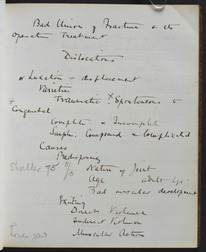 Bad Union of Fracture & its
operative Treatment
Dislocations
Luxation = displacement
Varieties
Traumatic Spontaneous &
Congenital
Complete & Incomplete
Simple, Compound & Complicated
Causes
Predisposing
Nature of Joint
Age
Bad muscular development
Exciting
Direct Violence
Indirect Violence
Muscular Action